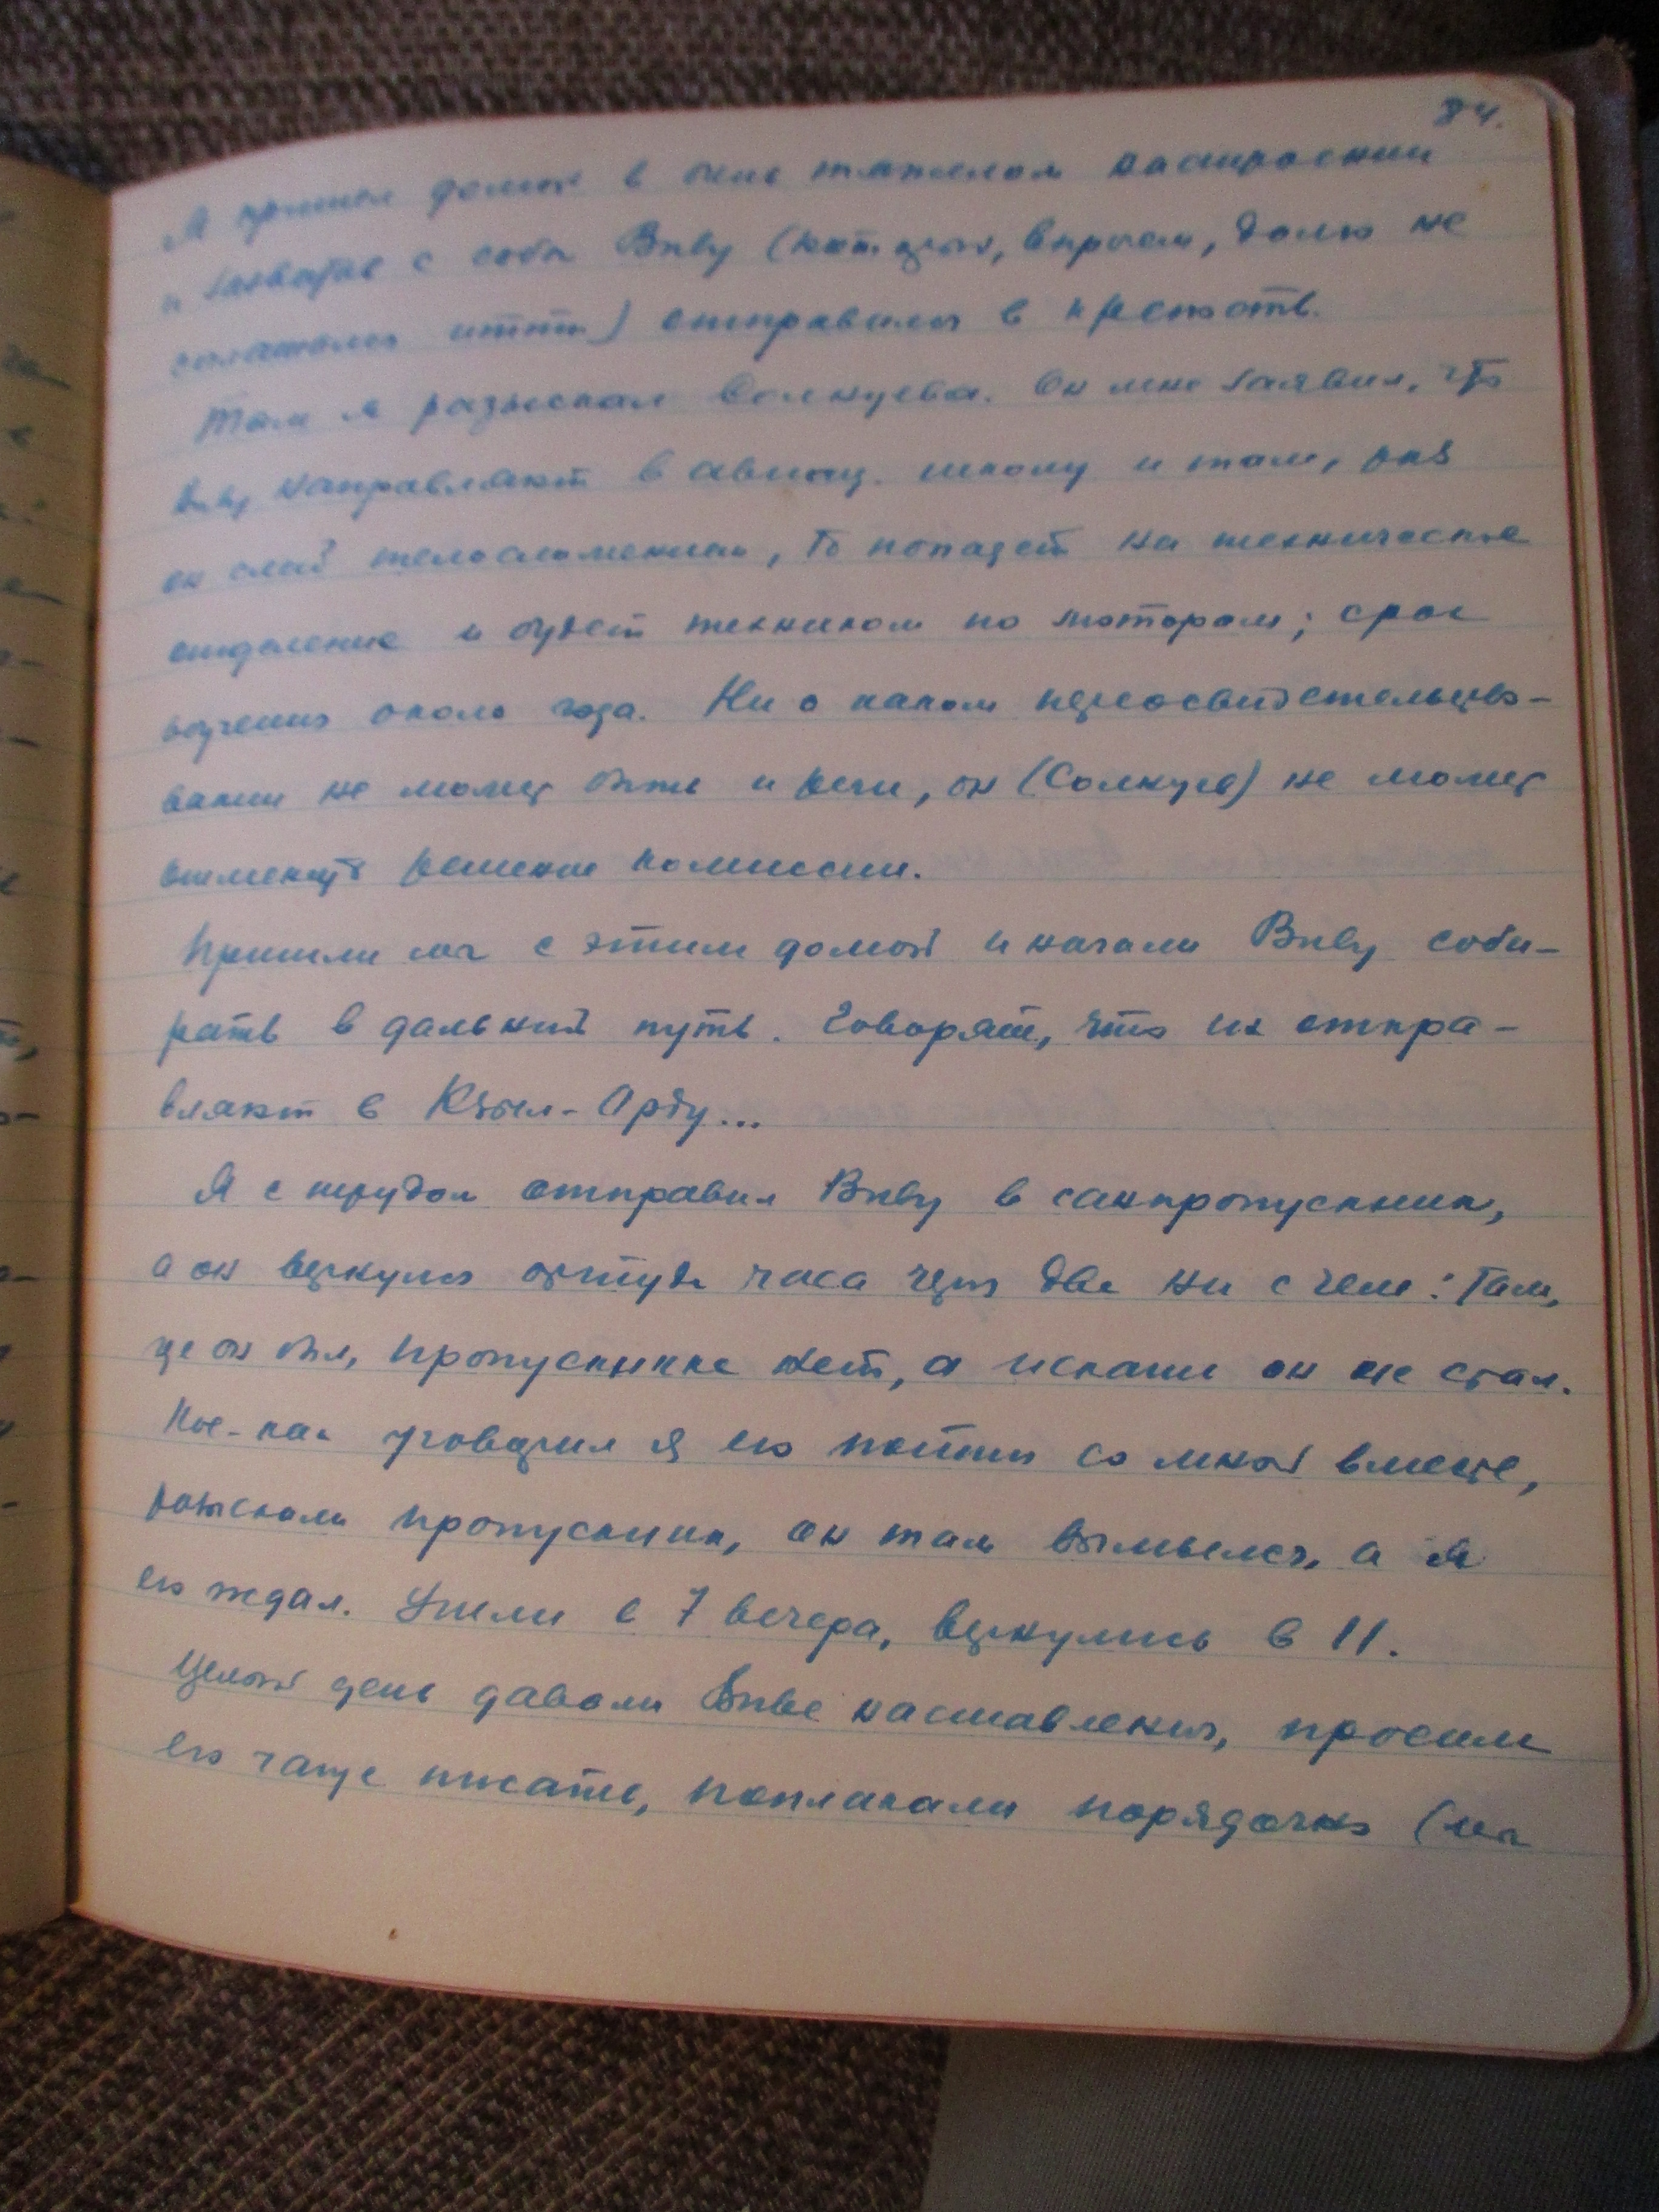 84.
Я пришел домой в очень тяжелом настроении
и захватив с собой Вову (который, впрочем, долго не
соглашался итти) отправился в крепость.
Там я разыскал Солнцева. Он мне заявил, что
Вову направляют в авиац. школу и там, раз
он слаб телосложением, то попадет на техническое
отделение и будет техником по моторам; срок
обучения около года. Ни о каком переосвидетельство-
вании не может быть и речи, он (Солнцев) не может
отменить решение комиссии.
Пришли мы с этим домой и начали Вову соби-
рать в дальний путь. Говорят, что их отпра-
вляют в Кзыл-Орду...
Я с трудом отправил Вову в санпропускник,
а он вернулся оттуда часа через два ни с чем: там,
где он был, пропускника нет, а искать он не стал.
Кое-как уговорил я его пойти со мной вместе,
разыскали пропускник, он там вымылся, а я
его ждал. Ушли в 7 вечера, вернулись в 11.
Целый день давали Вове наставления, просили
его чаще писать, поплакали порядочно (мы